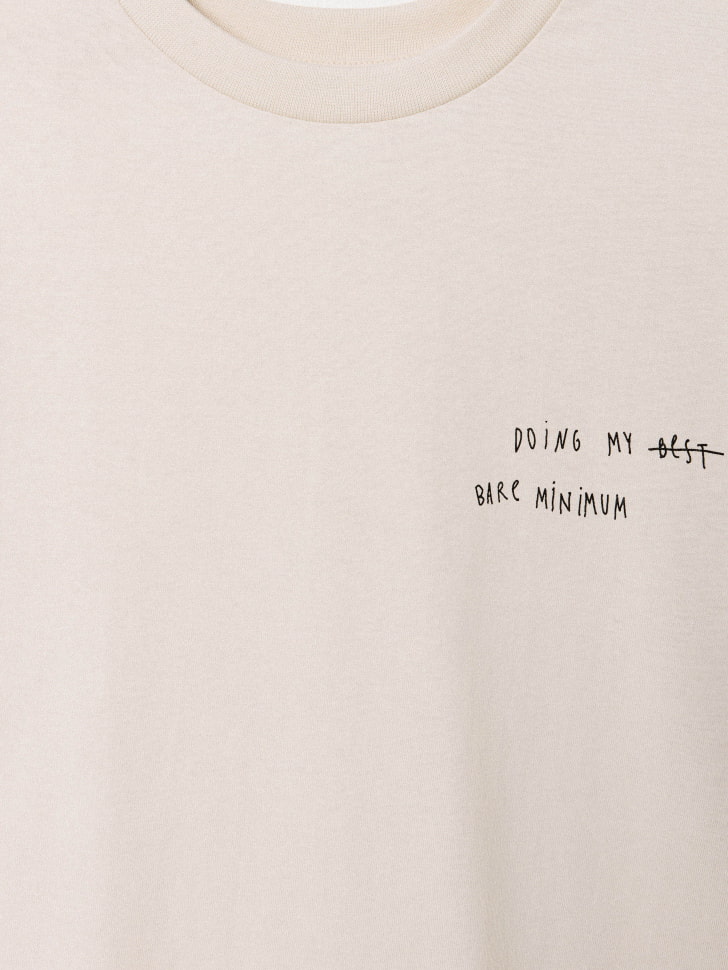 DOING MY BEST
BARE MINIMUM